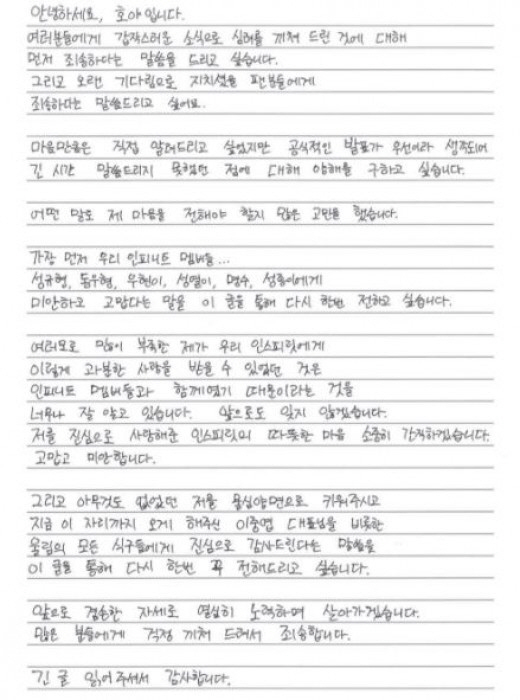 안녕하세요, 호야입니다.
여러분들에게 갑작스러운 소식으로 심려를 끼쳐 드린 것에 대해
먼저 죄송하다는 말씀을 드리고 싶습니다.
그리고 오랜 기다림으로 지치셨을 팬분들에게
죄송하다는 말씀드리고 싶어요.
마음만은 직접 알려드리고 싶었지만 공식적인 발표가 우선이라 생각되어
긴 시간 말씀드리지 못했던 점에 대해 양해를 구하고 싶습니다.
어떤 말로 제 마음을 전해야 할지 많은 고민을 했습니다.
가장 먼저 우리 인피니트 멤버들...
성규형, 동우형, 우현이, 성열이, 명수, 성종이에게
미안하고 고맙다는 말을 이 글을 통해 다시 한번 전하고 싶습니다.
여러모로 많이 부족한 제가 우리 인스피릿에게
이렇게 과분한 사랑을 받을 수 있었던 것은
인피니트 멤버들과 함께였기 때문이라는 것을
너무나 잘 알고 있습니다. 앞으로도 잊지 않겠습니다.
저를 진심으로 사랑해준 인스피릿의 따뜻한 마음 소중히 간직하겠습니다.
고맙고 미안합니다.
그리고 아무것도 없었던 저를 물심양면으로 키워주시고
지금 이 자리까지 오게 해주신 이중엽 대표님을 비롯한
울림의 모든 식구들에게 진심으로 감사드린다는 말씀을
이 글을 통해 다시 한번 꼭 전해드리고 싶습니다.
앞으로 겸손한 자세로 열심히 노력하며 살아가겠습니다.
많은 분들에게 걱정 끼쳐 드려서 죄송합니다.
긴 글 읽어주셔서 감사합니다.